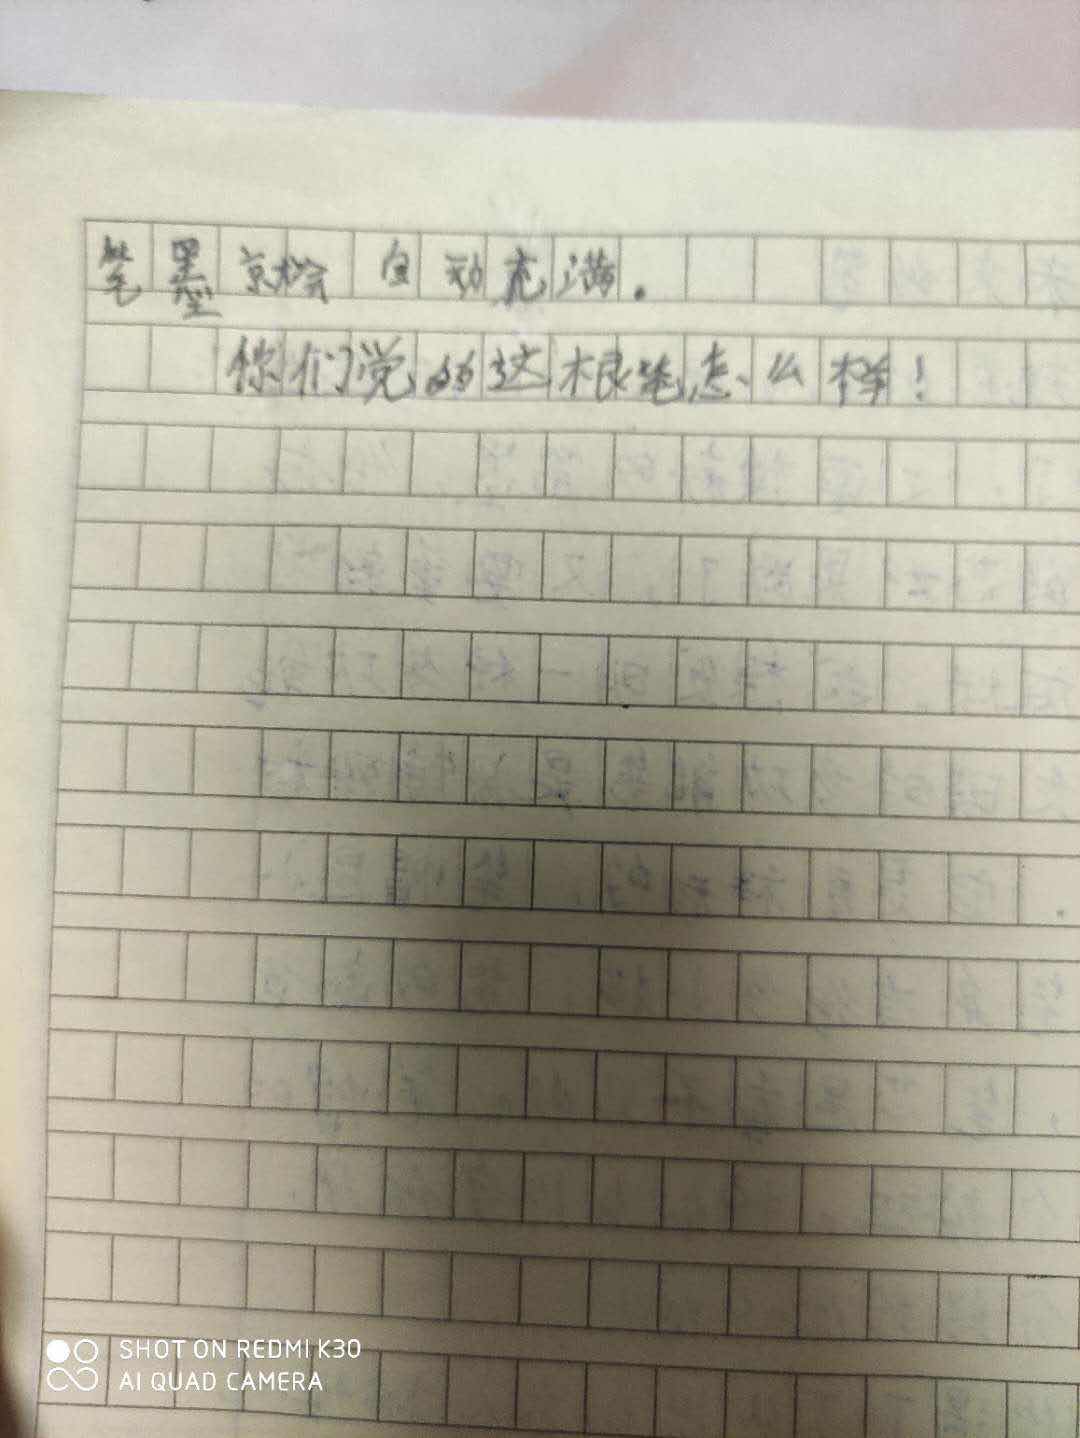 笔墨就会自动充满。
你们觉的这根笔怎么样！
SHOT ON REDMI K30
AI QUAD CAMERA